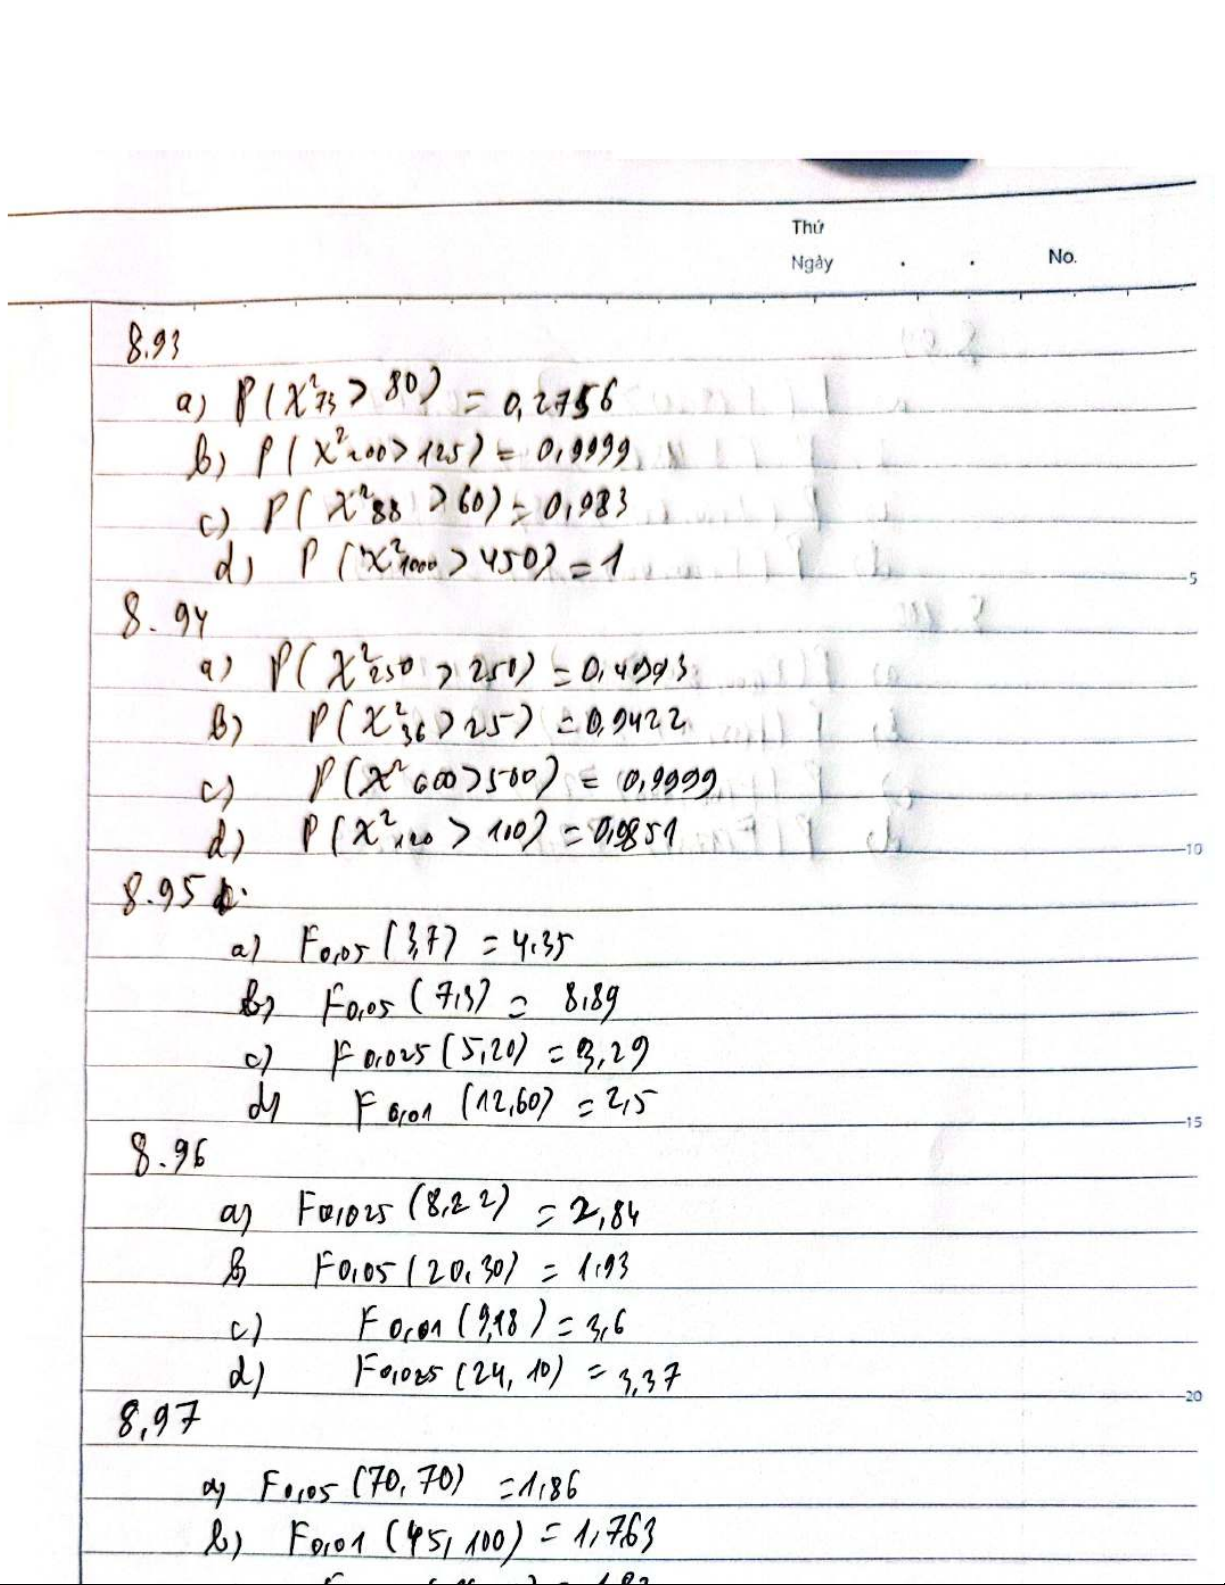 Thứ
Ngày . . No.
8.93
a) P(X²73 > 80) = 0,2756
b) P(X²200 > 125) = 0,9999
c) P(X²88 > 60) = 0,983
d) P(X²1000 > 450) = 1
5
8.94
a) P(X²250 > 250) = 0,4993
b) P(X²36 > 25) = 0,9422
c) P(X²600 > 500) = 0,9999
d) P(X² > 100) =
10
8.95
a) F0,05 (3,7) = 4.35
b) F0,05 (7,3) = 8,89
c) F0,025 (5,20) = 3,29
d) F0,01 (12,60) = 2,5
15
8.96
a) F0,025 (8,22) = 2,84
b F0,05 (20,30) = 1,93
c) F0,01 (9,18) = 3,6
d) F0,025 (24, 10) = 3,37
20
8,97
a) F0,05 (70, 70) = 1,86
b) F0,01 (45, 100) = 1,763